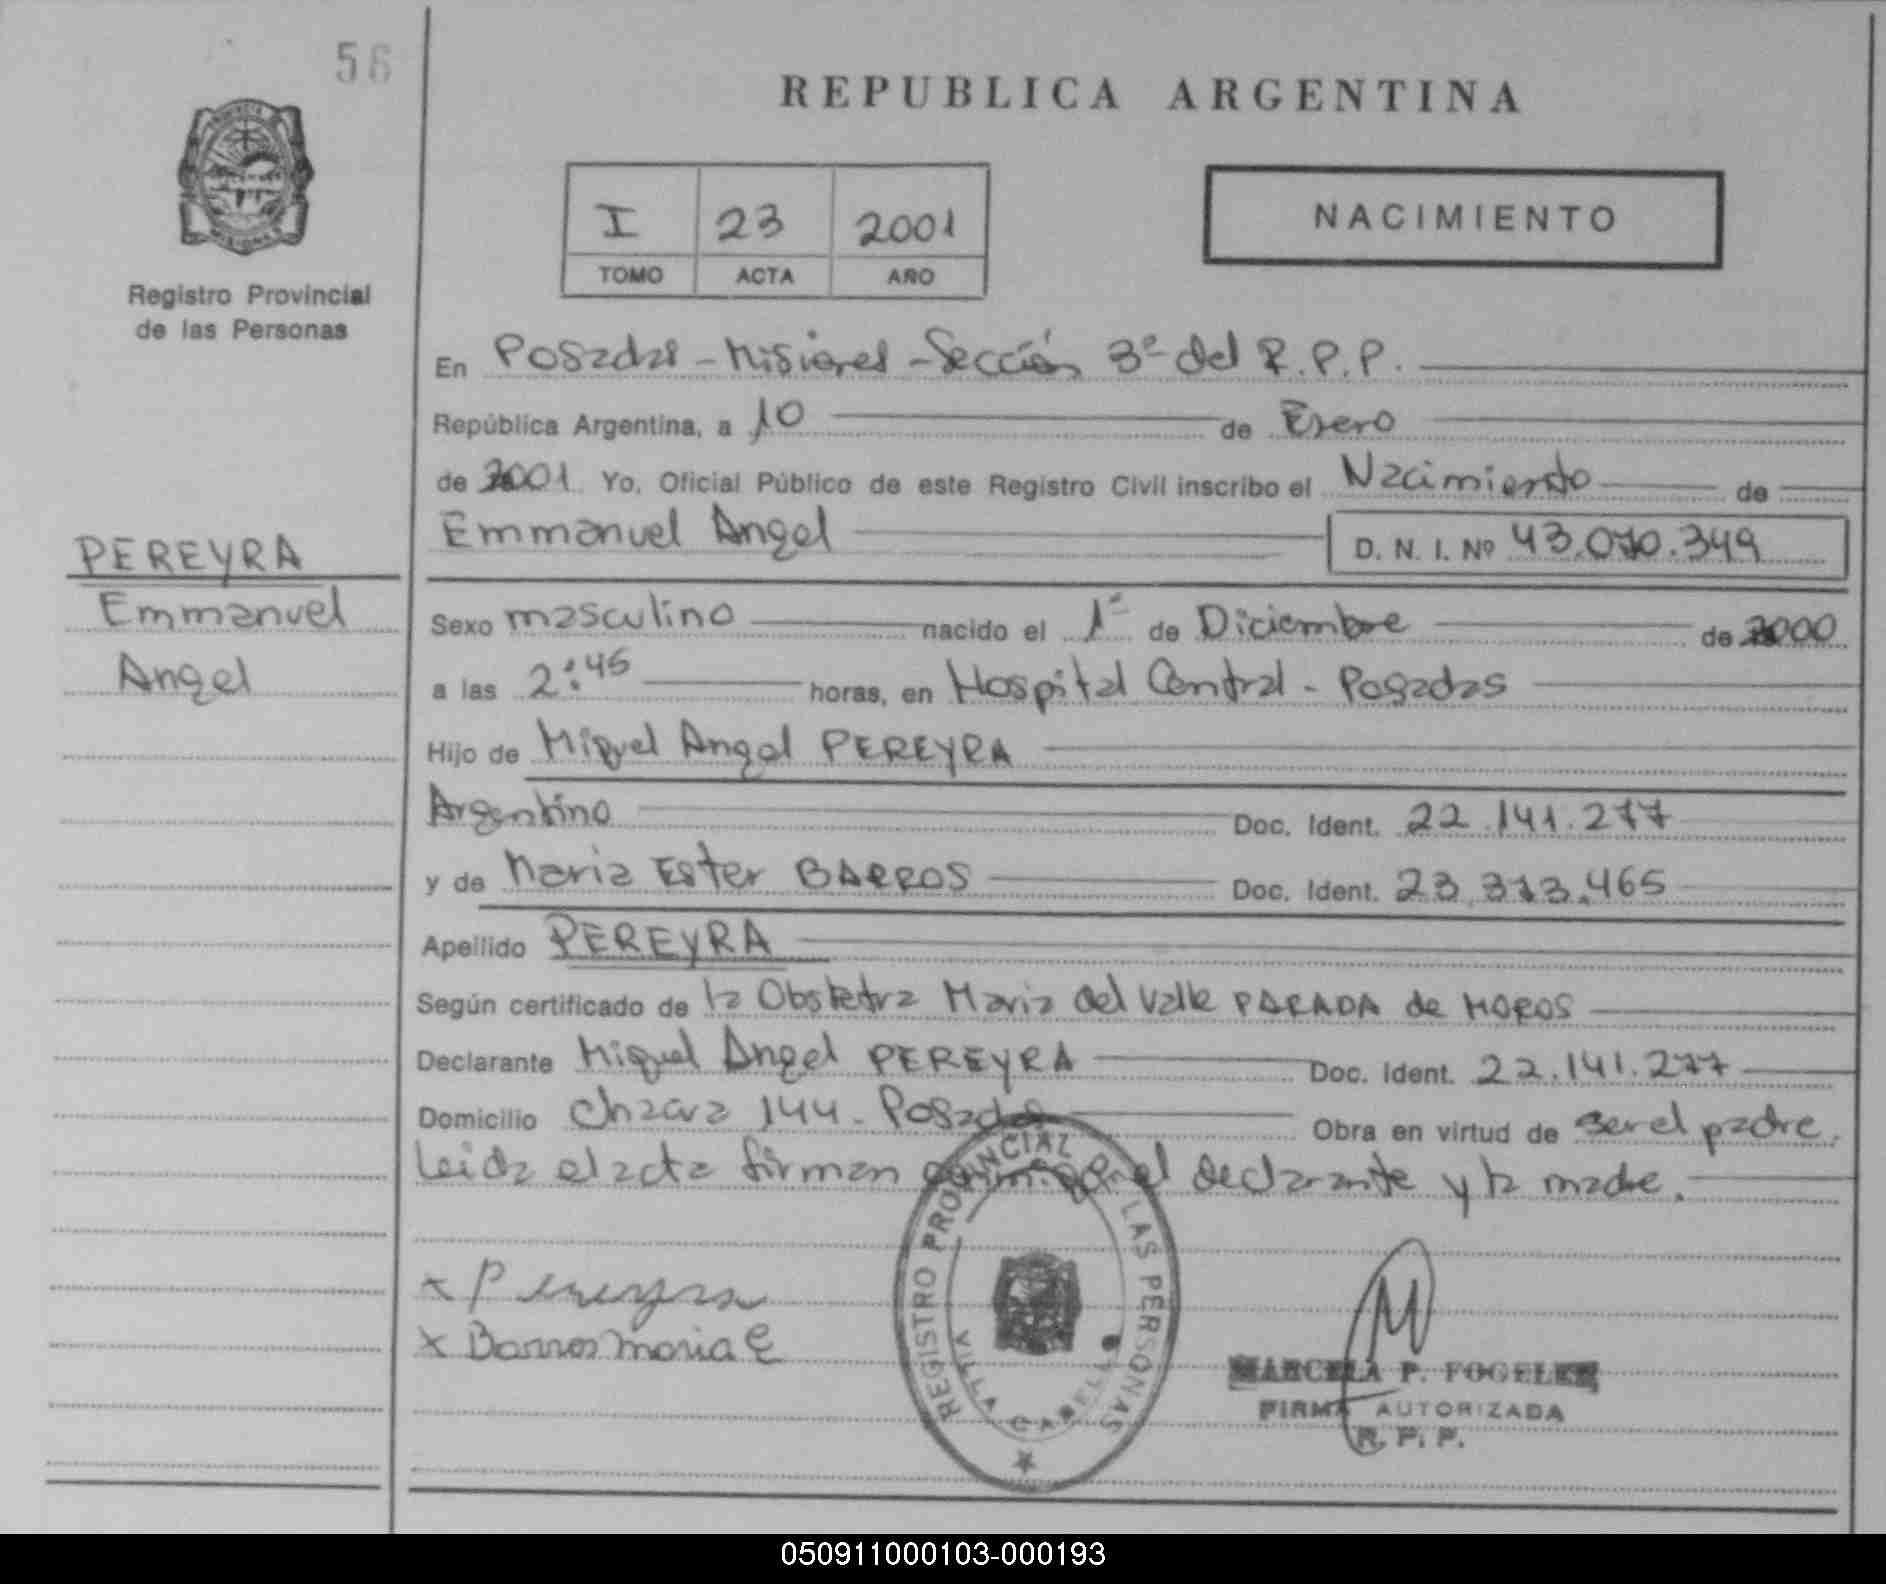 56
REPUBLICA ARGENTINA
I 23 2001
TOMO ACTA AÑO
NACIMIENTO
Registro Provincial
de las Personas
PEREYRA
Emmanuel
Angel
En Posadas - Misiones - Sección 3ª del R.P.P.
República Argentina, a 10 de Enero
de 2001 Yo, Oficial Público de este Registro Civil inscribo el Nacimiento de
Emmanuel Angel D. N. I. Nº 43.070.349
Sexo masculino nacido el 1º de Diciembre de 2000
a las 2:45 horas, en Hospital Central - Posadas
Hijo de Miguel Angel PEREYRA
Argentino Doc. Ident. 22.141.277
y de Maria Ester BARROS Doc. Ident. 23.313.465
Apellido PEREYRA
Según certificado de la Obstetra Maria del Valle PARADA de MOROS
Declarante Miguel Angel PEREYRA Doc. Ident. 22.141.277
Domicilio Chacra 144 - Posadas Obra en virtud de ser el padre.
Leida el acta firman conmigo el declarante y la madre.
x Pereyra
x Barros Maria E
REGISTRO PROVINCIAL DE LAS PERSONAS
VILLA CABELLO
MARCELA P. FOGELER
FIRMA AUTORIZADA
R. P. P.
050911000103-000193